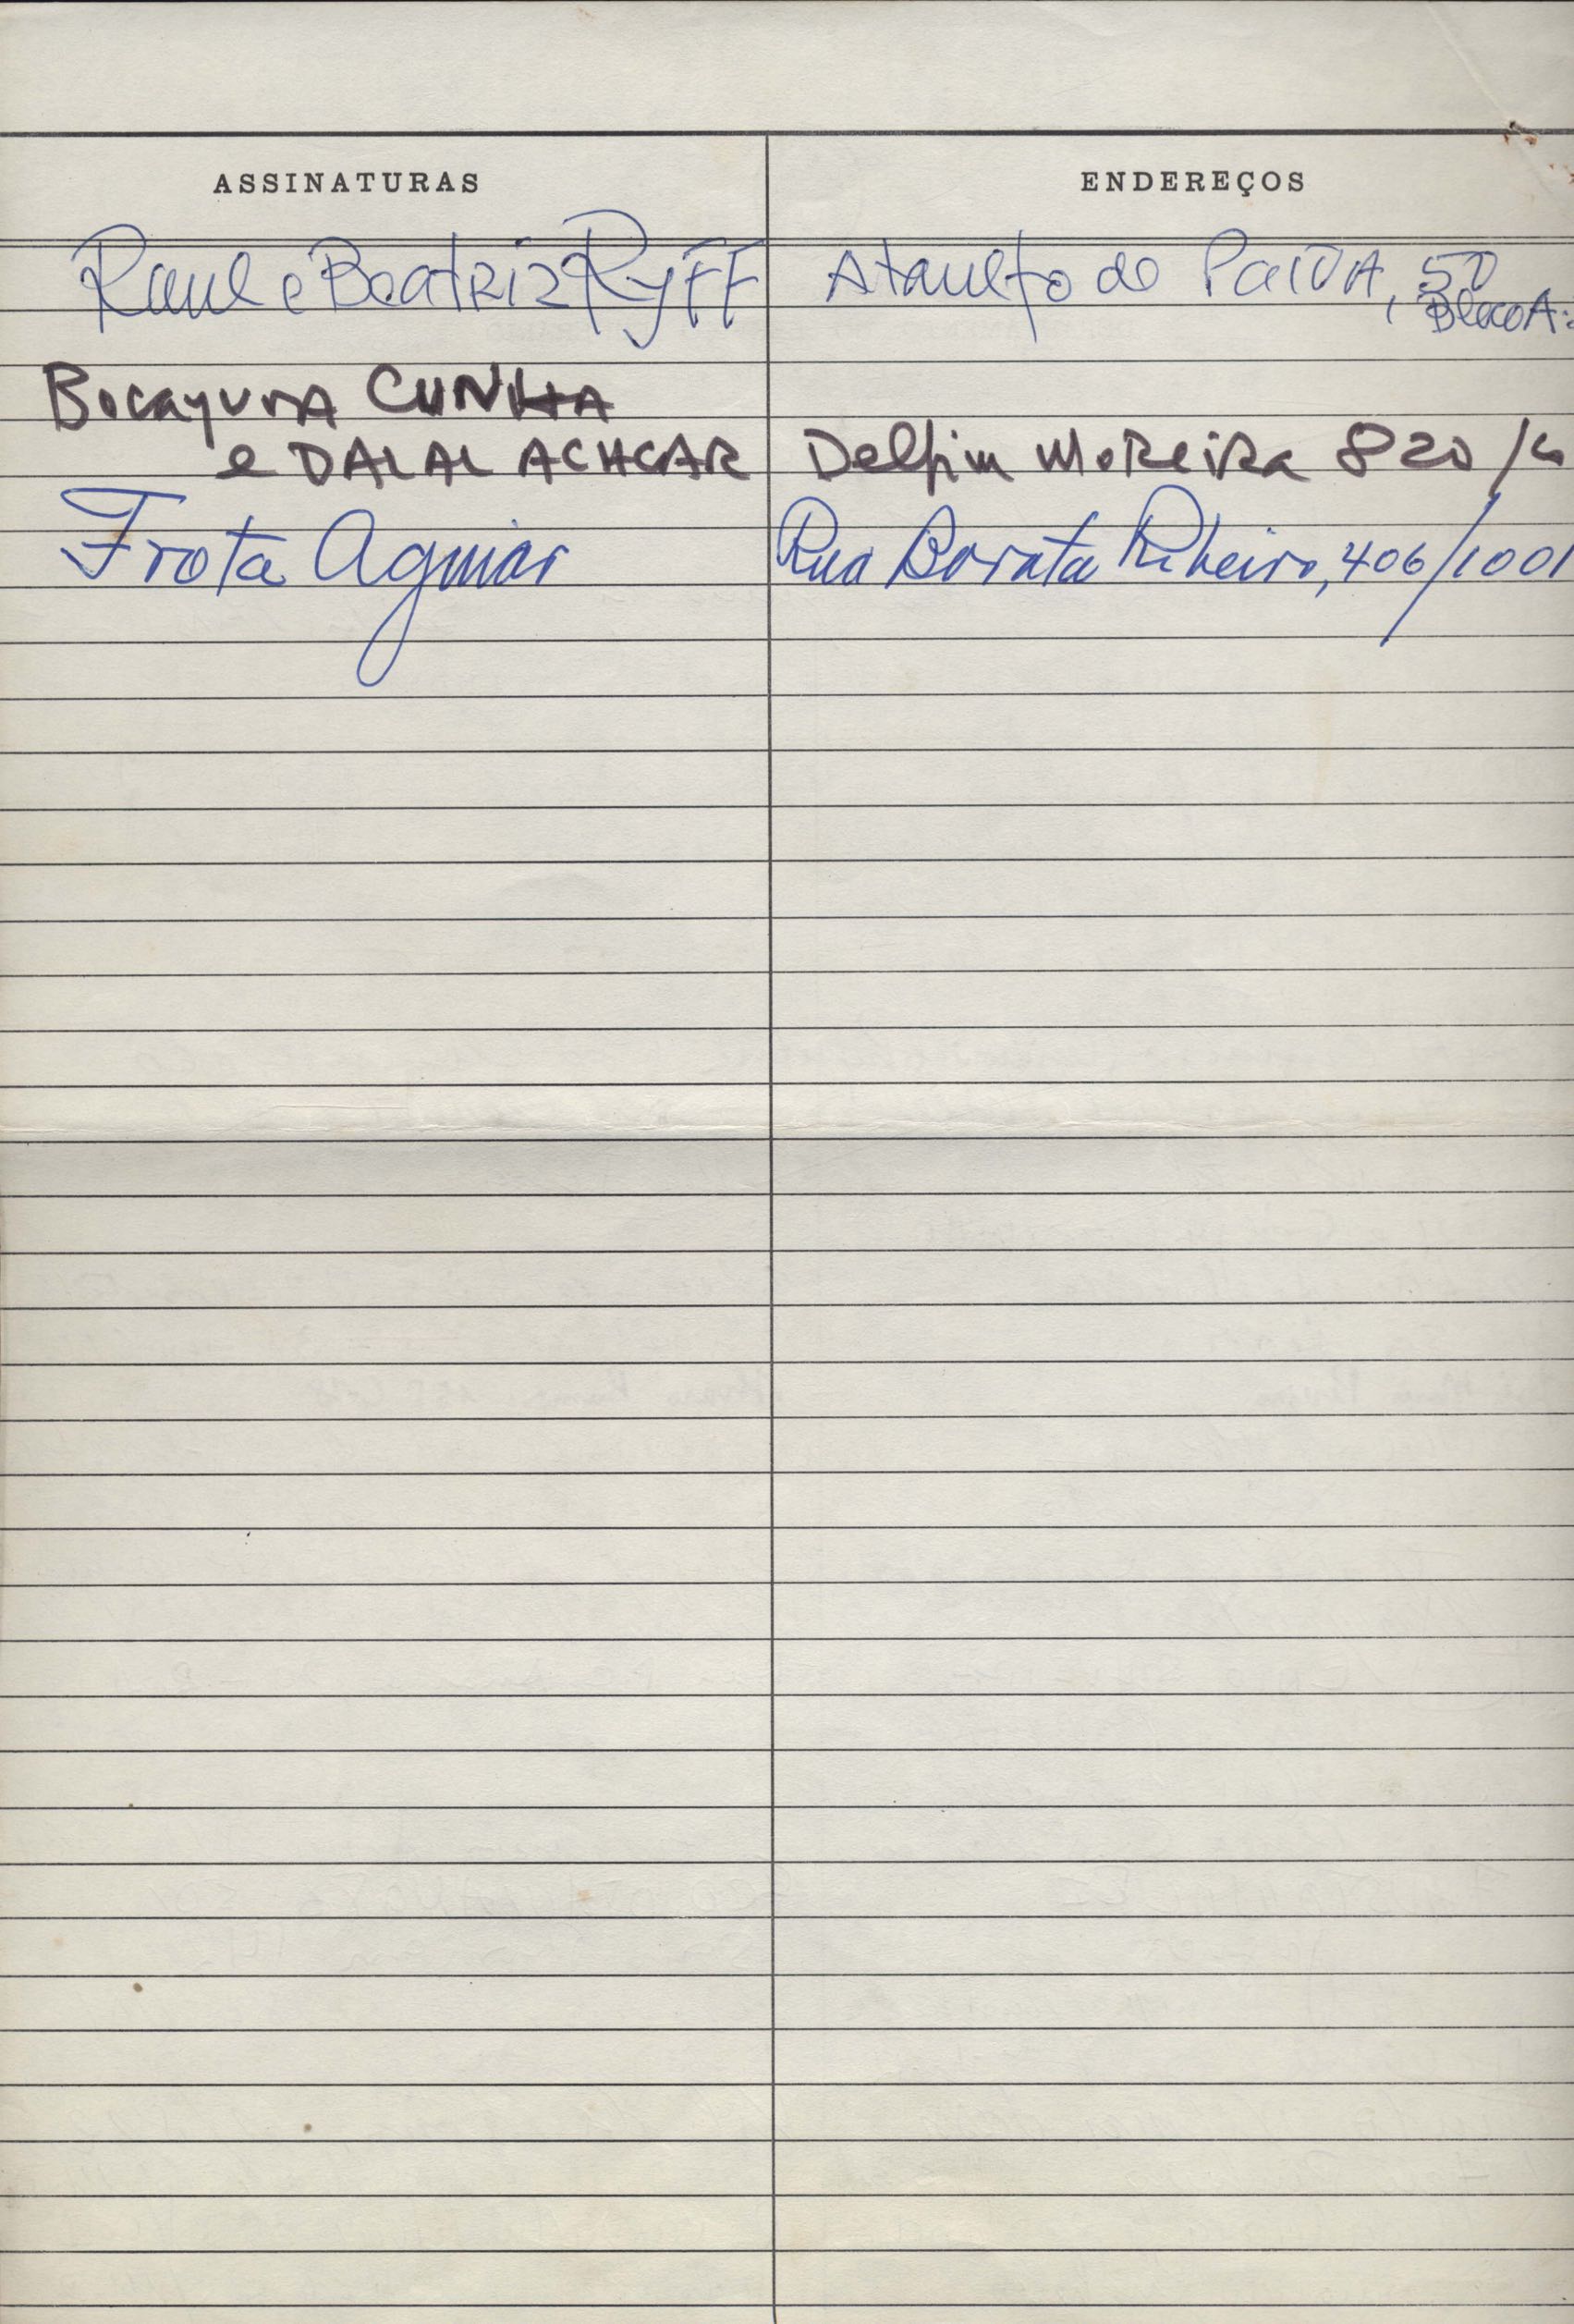 ASSINATURAS ENDEREÇOS
Raul e Beatriz Ryff Ataulfo de Paiva, 50
Bloco A:
Bocayuva CUNHA
e DALAL ACHCAR Delfim Moreira 820 /
Frota Aguiar Rua Barata Ribeiro, 406/1001